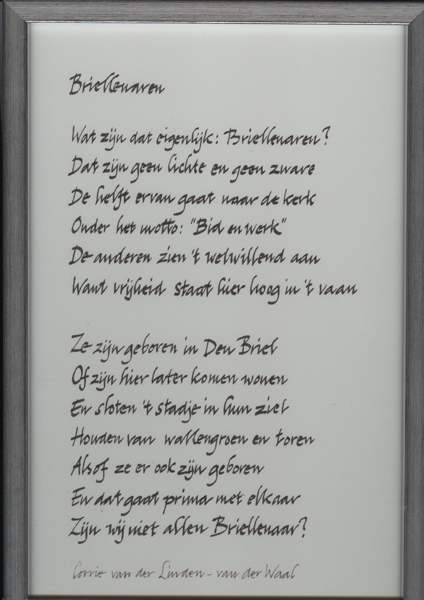 Briellenaren
Wat zijn dat eigenlijk: Briellenaren?
Dat zijn geen lichte en geen zware
De helft ervan gaat naar de kerk
Onder het motto: "Bid en werk"
De anderen zien 't welwillend aan
Want vrijheid staat hier hoog in 't vaan
Ze zijn geboren in Den Briel
Of zijn hier later komen wonen
En sloten 't stadje in hun ziel
Houden van wallengroen en toren
Alsof ze er ook zijn geboren
En dat gaat prima met elkaar
Zijn wij niet allen Briellenaar?
Corrie van der Linden - van der Waal